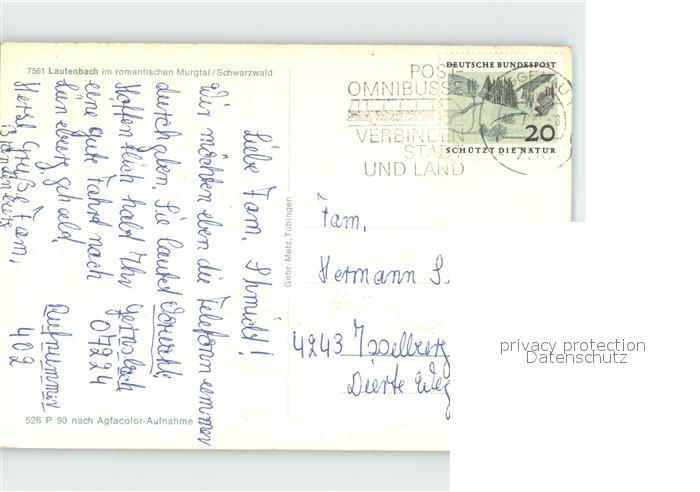 7561 Lautenbach im romantischen Murgtal/Schwarzwald
Liebe Fam. Schmidt!
Wir möchten eben die Telefonnummer
durchgeben. Sie lautet Vorwahl:
Hoffentlich habt Ihr Gernsbach
eine gute Fahrt nach 07224
Lüneberg gehabt. Rufnummer
Herzl. Grüße Fam. 402
526 P 90 nach Agfacolor-Aufnahme
Gebr. Metz, Tübingen
POST
OMNIBUSSE
VERBINDEN
STADT
UND LAND
DEUTSCHE BUNDESPOST
20
SCHÜTZT DIE NATUR
Fam.
Hermann S.
4243 Isselberg
Dierte Weg
privacy protection
Datenschutz